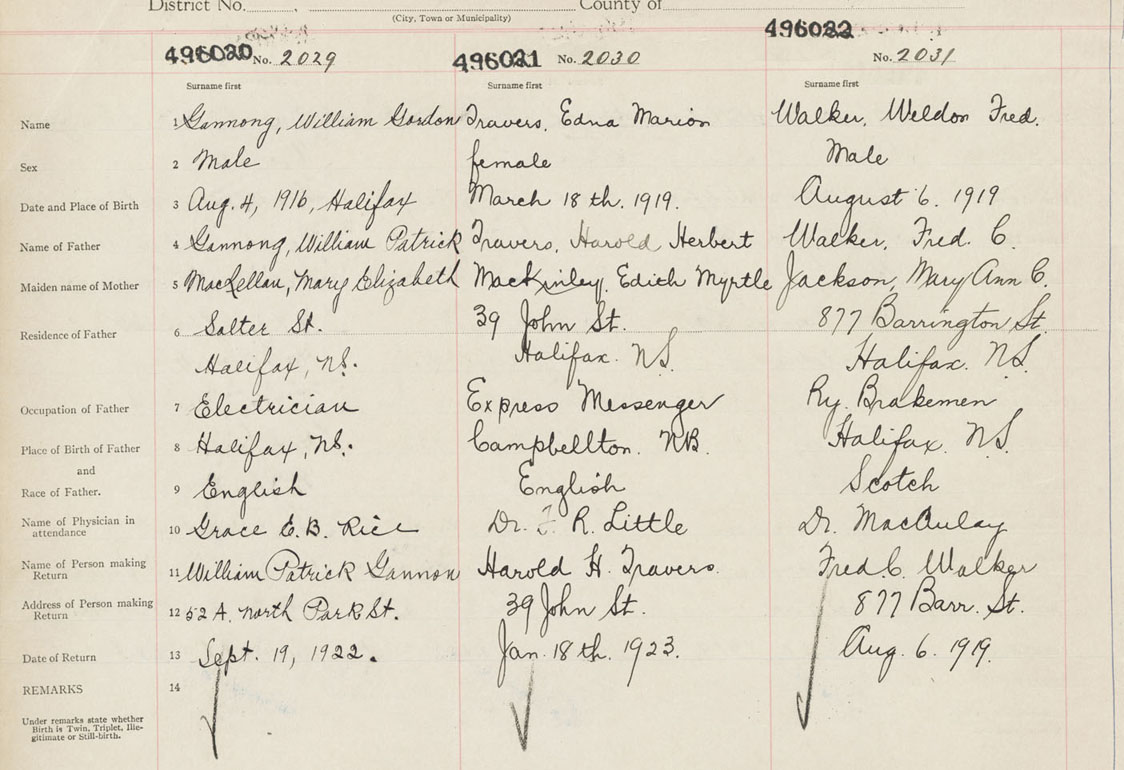 District No. County of
(City, Town or Municipality)
496020 No. 2029 496021 No. 2030 496022 No. 2031
Surname first Surname first Surname first
Name 1 Gannong, William Gordon Travers, Edna Marion Walker, Weldon Fred.
Sex 2 Male female Male
Date and Place of Birth 3 Aug. 4, 1916, Halifax March 18th. 1919. August 6. 1919
Name of Father 4 Gannong, William Patrick Travers, Harold Herbert Walker, Fred. C.
Maiden name of Mother 5 MacLellan, Mary Elizabeth MacKinley, Edith Myrtle Jackson, Mary Ann C.
Residence of Father 6 Salter St. 39 John St. 877 Barrington St.
Halifax, N.S. Halifax. N.S. Halifax. N.S.
Occupation of Father 7 Electrician Express Messenger Ry. Brakemen
Place of Birth of Father 8 Halifax, N.S. Campbellton. N.B. Halifax. N.S.
and
Race of Father. 9 English English Scotch
Name of Physician in
attendance 10 Grace E. B. Rice Dr. R. Little Dr. MacAulay
Name of Person making
Return 11 William Patrick Gannon Harold H. Travers. Fred. C. Walker
Address of Person making
Return 12 52 A. North Park St. 39 John St. 877 Barr. St.
Date of Return 13 Sept. 19, 1922. Jan. 18th. 1923. Aug. 6. 1919.
REMARKS 14
Under remarks state whether
Birth is Twin, Triplet, Ille-
gitimate or Still-birth.